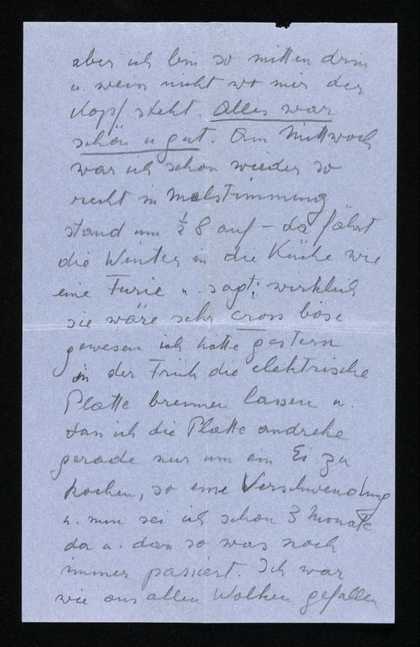 aber ich bin so mitten drin
u. weiss nicht wo mir der
Kopf steht. Alles war
schön u gut. Am Mittwoch
war ich schon wieder so
recht in Malstimmung
stand um ½ 8 auf – da fährt
die Winter in die Küche wie
eine Furie u. sagt, wirklich
sie wäre sehr cross böse
gewesen ich hatte gestern
in der Früh die elektrische
Platte brennen lassen u.
dass ich die Platte andrehe
gerade nur um ein Ei zu
kochen, so eine Verschwendung
u. nun sei ich schon 3 Monate
da u. dass so was noch
immer passiert. Ich war
wie aus allen Wolken gefallen